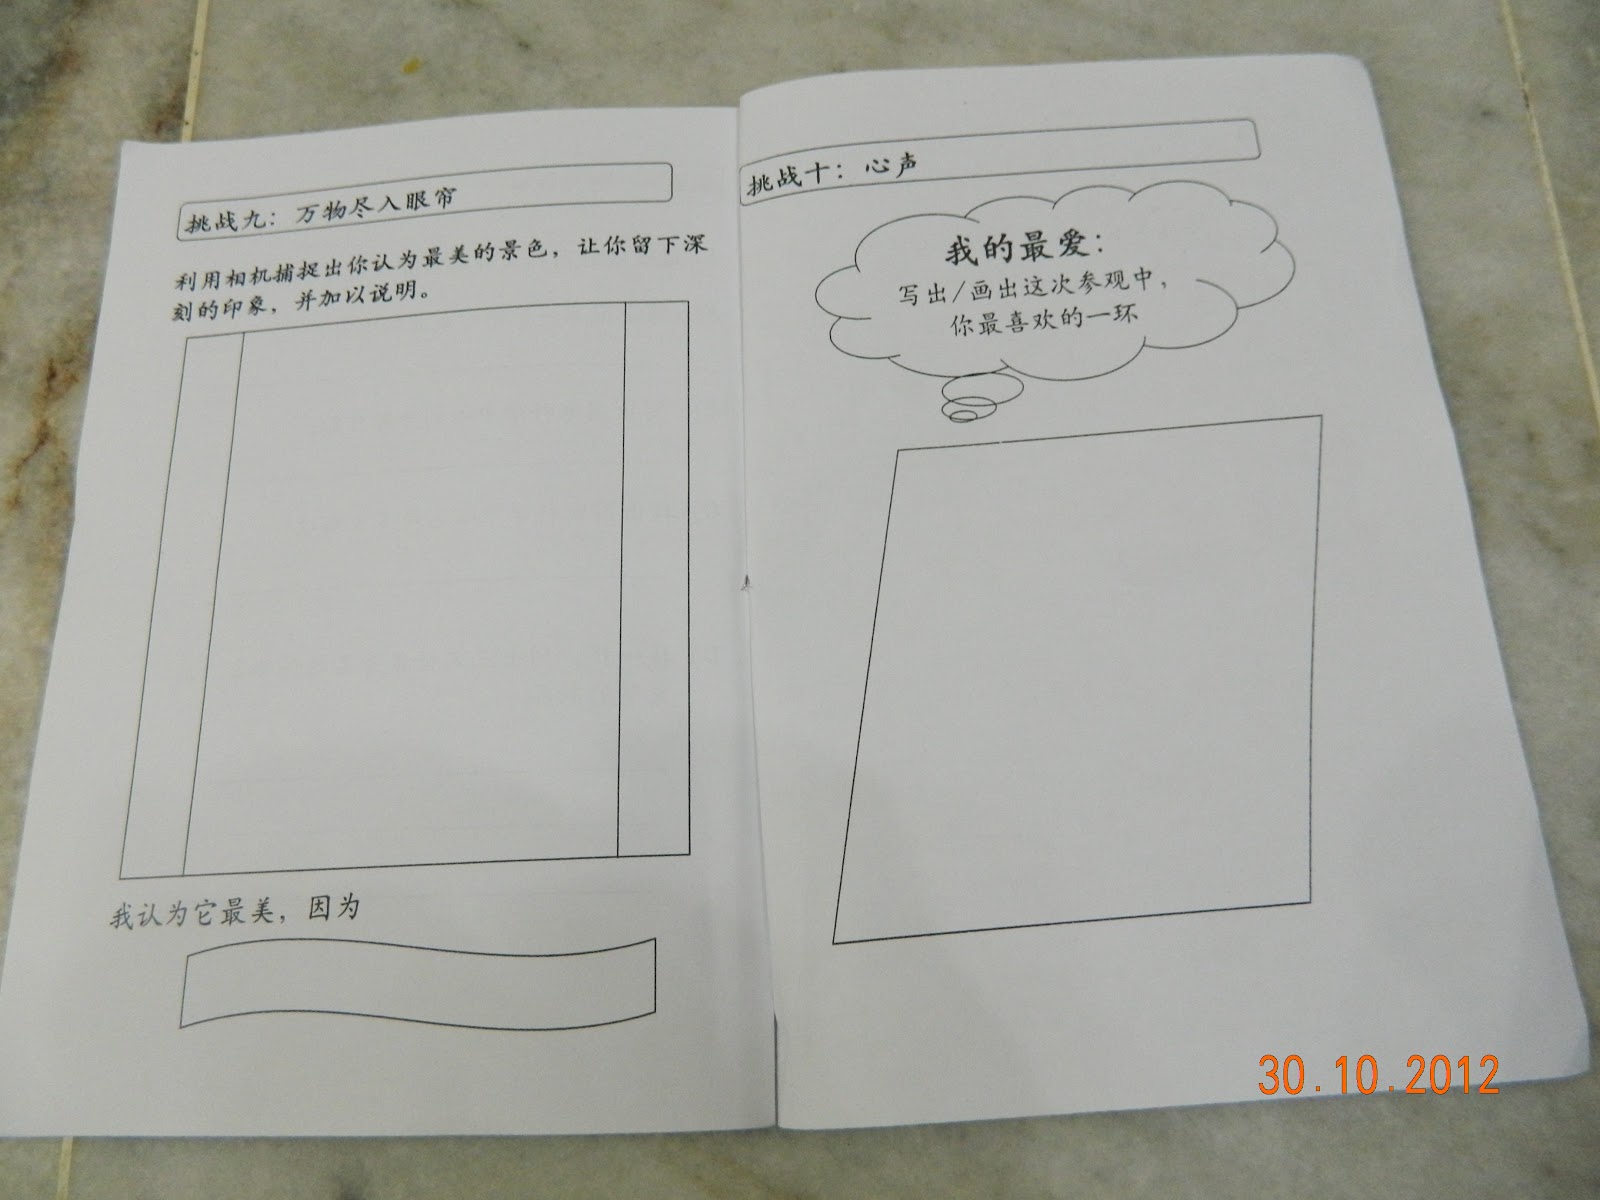 挑战九：万物尽入眼帘
利用相机捕捉出你认为最美的景色，让你留下深
刻的印象，并加以说明。
我认为它最美，因为
挑战十：心声
我的最爱：
写出/画出这次参观中，
你最喜欢的一环
30.10.2012